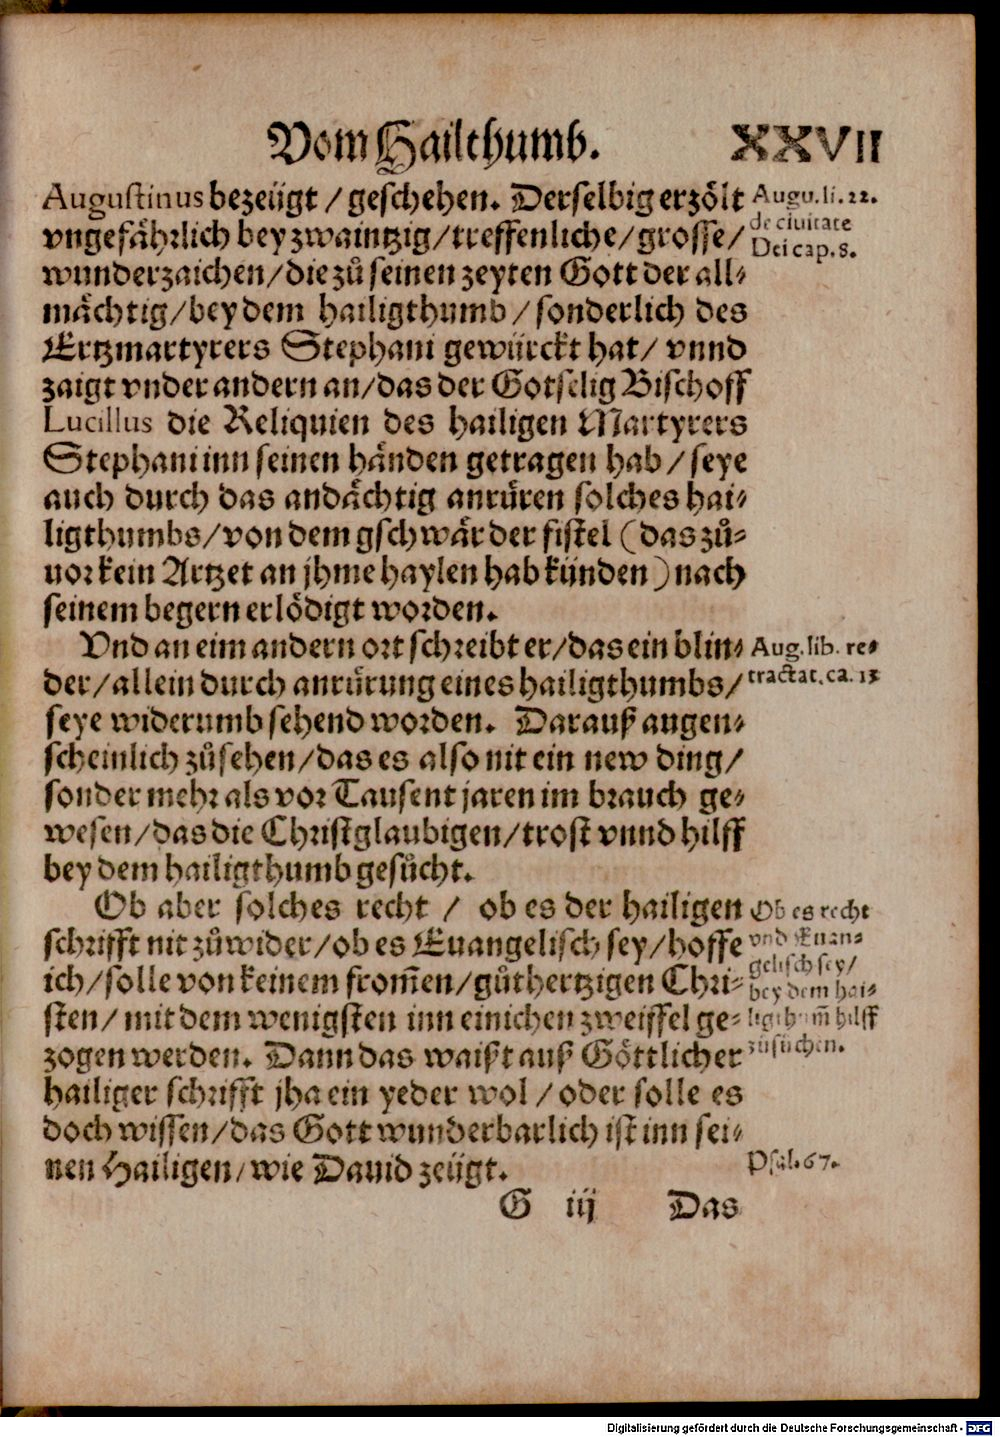 Vom Hailthumb. XXVII
Augustinus bezeügt / geschehen. Derselbig erzölt
vngefährlich bey zwaintzig/treffenliche/grosse/
wunderzaichen/die zů seinen zeyten Gott der all-
mächtig/bey dem hailigthumb/sonderlich des
Ertzmartyrers Stephani gewürckt hat/ vnnd
zaigt vnder andern an/das der Gotselig Bischoff
Lucillus die Reliquien des hailigen Martyrers
Stephani inn seinen händen getragen hab/seye
auch durch das andächtig anrüren solches hai-
ligthumbs/von dem gschwär der fistel (das zů-
uor kein Artzet an jhme haylen hab künden) nach
seinem begern erlödigt worden.
Vnd an eim andern ort schreibt er/das ein blin-
der/allein durch anrürung eines hailigthumbs/
seye widerumb sehend worden. Darauß augen-
scheinlich zůsehen/das es also nit ein new ding/
sonder mehr als vor Tausent jaren im brauch ge-
wesen/das die Christglaubigen/trost vnnd hilff
bey dem hailigthumb gesůcht.
Ob aber solches recht / ob es der hailigen
schrifft nit zůwider/ob es Euangelisch sey/hoffe
ich/solle von keinem from̃en/gůthertzigen Chri-
sten/mit dem wenigsten inn einichen zweiffel ge-
zogen werden. Dann das waißt auß Göttlicher
hailiger schrifft jha ein yeder wol/oder solle es
doch wissen/das Gott wunderbarlich ist inn sei-
nen Hailigen/wie Dauid zeügt.
G iij Das
Augu. li. 22.
de ciuitate
Dei cap. 8.
Aug. lib. re-
tractat. ca. 13
Ob es recht
vnd Euan-
gelisch sey/
bey dem hai-
ligthum̃ hilff
zůsůchen.
Psal. 67.
Digitalisierung gefördert durch die Deutsche Forschungsgemeinschaft - DFG